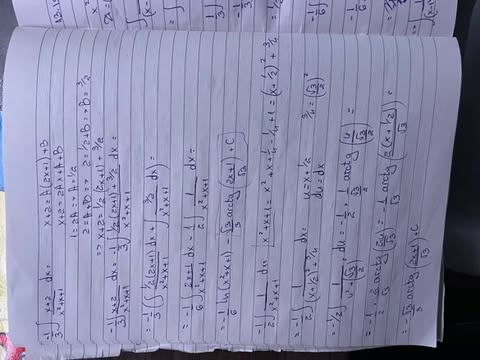 -1/3 ∫ x+2/x²+x+1 dx = x+2 = A(2x+1)+B
x+2 = 2Ax+A+B
1=2A => A=1/2
2=A+B => 2=1/2+B => B=3/2
=> x+2 = 1/2(2x+1)+3/2
-1/3 ∫ x+2/x²+x+1 dx = -1/3 ∫ 1/2(2x+1)+3/2 / x²+x+1 dx =
= -1/3 (∫ 1/2(2x+1)/x²+x+1 dx + ∫ 3/2 / x²+x+1 dx) =
= -1/6 ∫ 2x+1/x²+x+1 dx - 1/2 ∫ 1/x²+x+1 dx =
= -1/6 ln(x²+x+1) - √3/3 arctg(2x+1/√3) + C
-1/2 ∫ 1/x²+x+1 dx = x²+x+1 = x²+x+1/4-1/4+1 = (x+1/2)²+3/4
= -1/2 ∫ 1/(x+1/2)²+3/4 dx = u=x+1/2 3/4=(√3/2)²
du=dx
= -1/2 ∫ 1/u²+(√3/2)² du = -1/2 · 1/√3/2 arctg(u/√3/2) =
= -1/2 · 2/√3 arctg(2u/√3) = -1/√3 arctg(2(x+1/2)/√3) =
= -√3/3 arctg(2x+1/√3) + C